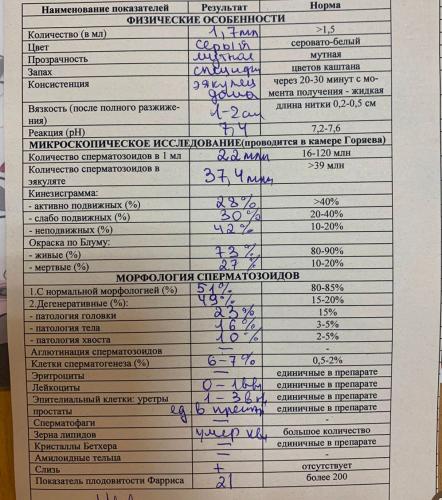 Наименование показателей Результат Норма
ФИЗИЧЕСКИЕ ОСОБЕННОСТИ
Количество (в мл) 1,7мл >1,5
Цвет серый серовато-белый
Прозрачность мутная мутная
Запах специфич цветов каштана
Консистенция эякулят дома через 20-30 минут с мо-
мента получения - жидкая
Вязкость (после полного разжиже-
ния) 1-2см длина нитки 0,2-0,5 см
Реакция (pH) 7,4 7,2-7,6
МИКРОСКОПИЧЕСКОЕ ИССЛЕДОВАНИЕ(проводится в камере Горяева)
Количество сперматозоидов в 1 мл 22 млн 16-120 млн
Количество сперматозоидов в
эякуляте 37,4 млн >39 млн
Кинезисграмма:
- активно подвижных (%) 28% >40%
- слабо подвижных (%) 30% 20-40%
- неподвижных (%) 42% 10-20%
Окраска по Блуму:
- живые (%) 73% 80-90%
- мертвые (%) 27% 10-20%
МОРФОЛОГИЯ СПЕРМАТОЗОИДОВ
1.С нормальной морфологией (%) 51% 80-85%
2.Дегенеративные (%): 49% 15-20%
- патология головки 23% 15%
- патология тела 16% 3-5%
- патология хвоста 10% 2-5%
Агглютинация сперматозоидов — -
Клетки сперматогенеза (%) 6-7% 0,5-2%
Эритроциты — единичные в препарате
Лейкоциты 0-1 единичные в препарате
Эпителиальный клетки: уретры 1-3 -
простаты ед в преп единичные в препарате
Сперматофаги — -
Зерна липидов умер кв большое количество
Кристаллы Бетхера — единичные в препарате
Амилоидные тельца — -
Слизь + отсутствует
Показатель плодовитости Фарриса 21 более 200